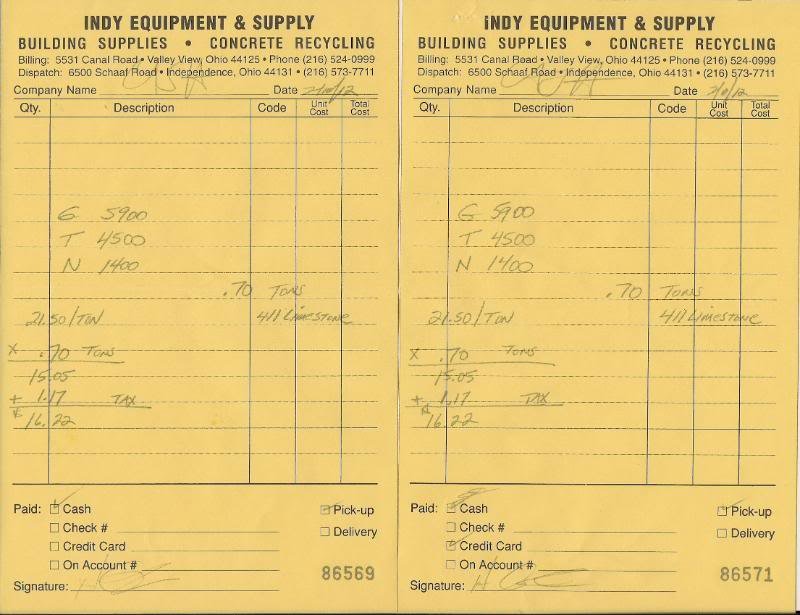 INDY EQUIPMENT & SUPPLY
BUILDING SUPPLIES • CONCRETE RECYCLING
Billing: 5531 Canal Road • Valley View, Ohio 44125 • Phone (216) 524-0999
Dispatch: 6500 Schaaf Road • Independence, Ohio 44131 • (216) 573-7711
Company Name Date 2/10/12
Qty. Description Code Unit Cost Total Cost
G 5900
T 4500
N 1400
.70 TONS
21.50/TON 411 LIMESTONE
X .70 TONS
15.05
+ 1.17 TAX
16.22
Paid: Cash Pick-up
Check # Delivery
Credit Card
On Account # 86569
Signature:
INDY EQUIPMENT & SUPPLY
BUILDING SUPPLIES • CONCRETE RECYCLING
Billing: 5531 Canal Road • Valley View, Ohio 44125 • Phone (216) 524-0999
Dispatch: 6500 Schaaf Road • Independence, Ohio 44131 • (216) 573-7711
Company Name Date
Qty. Description Code Unit Cost Total Cost
G 5900
T 4500
N 1400
.70 TONS
21.50/TON 411 LIMESTONE
X .70 TONS
15.05
+ 1.17 TAX
16.22
Paid: Cash Pick-up
Check # Delivery
Credit Card
On Account # 86571
Signature: